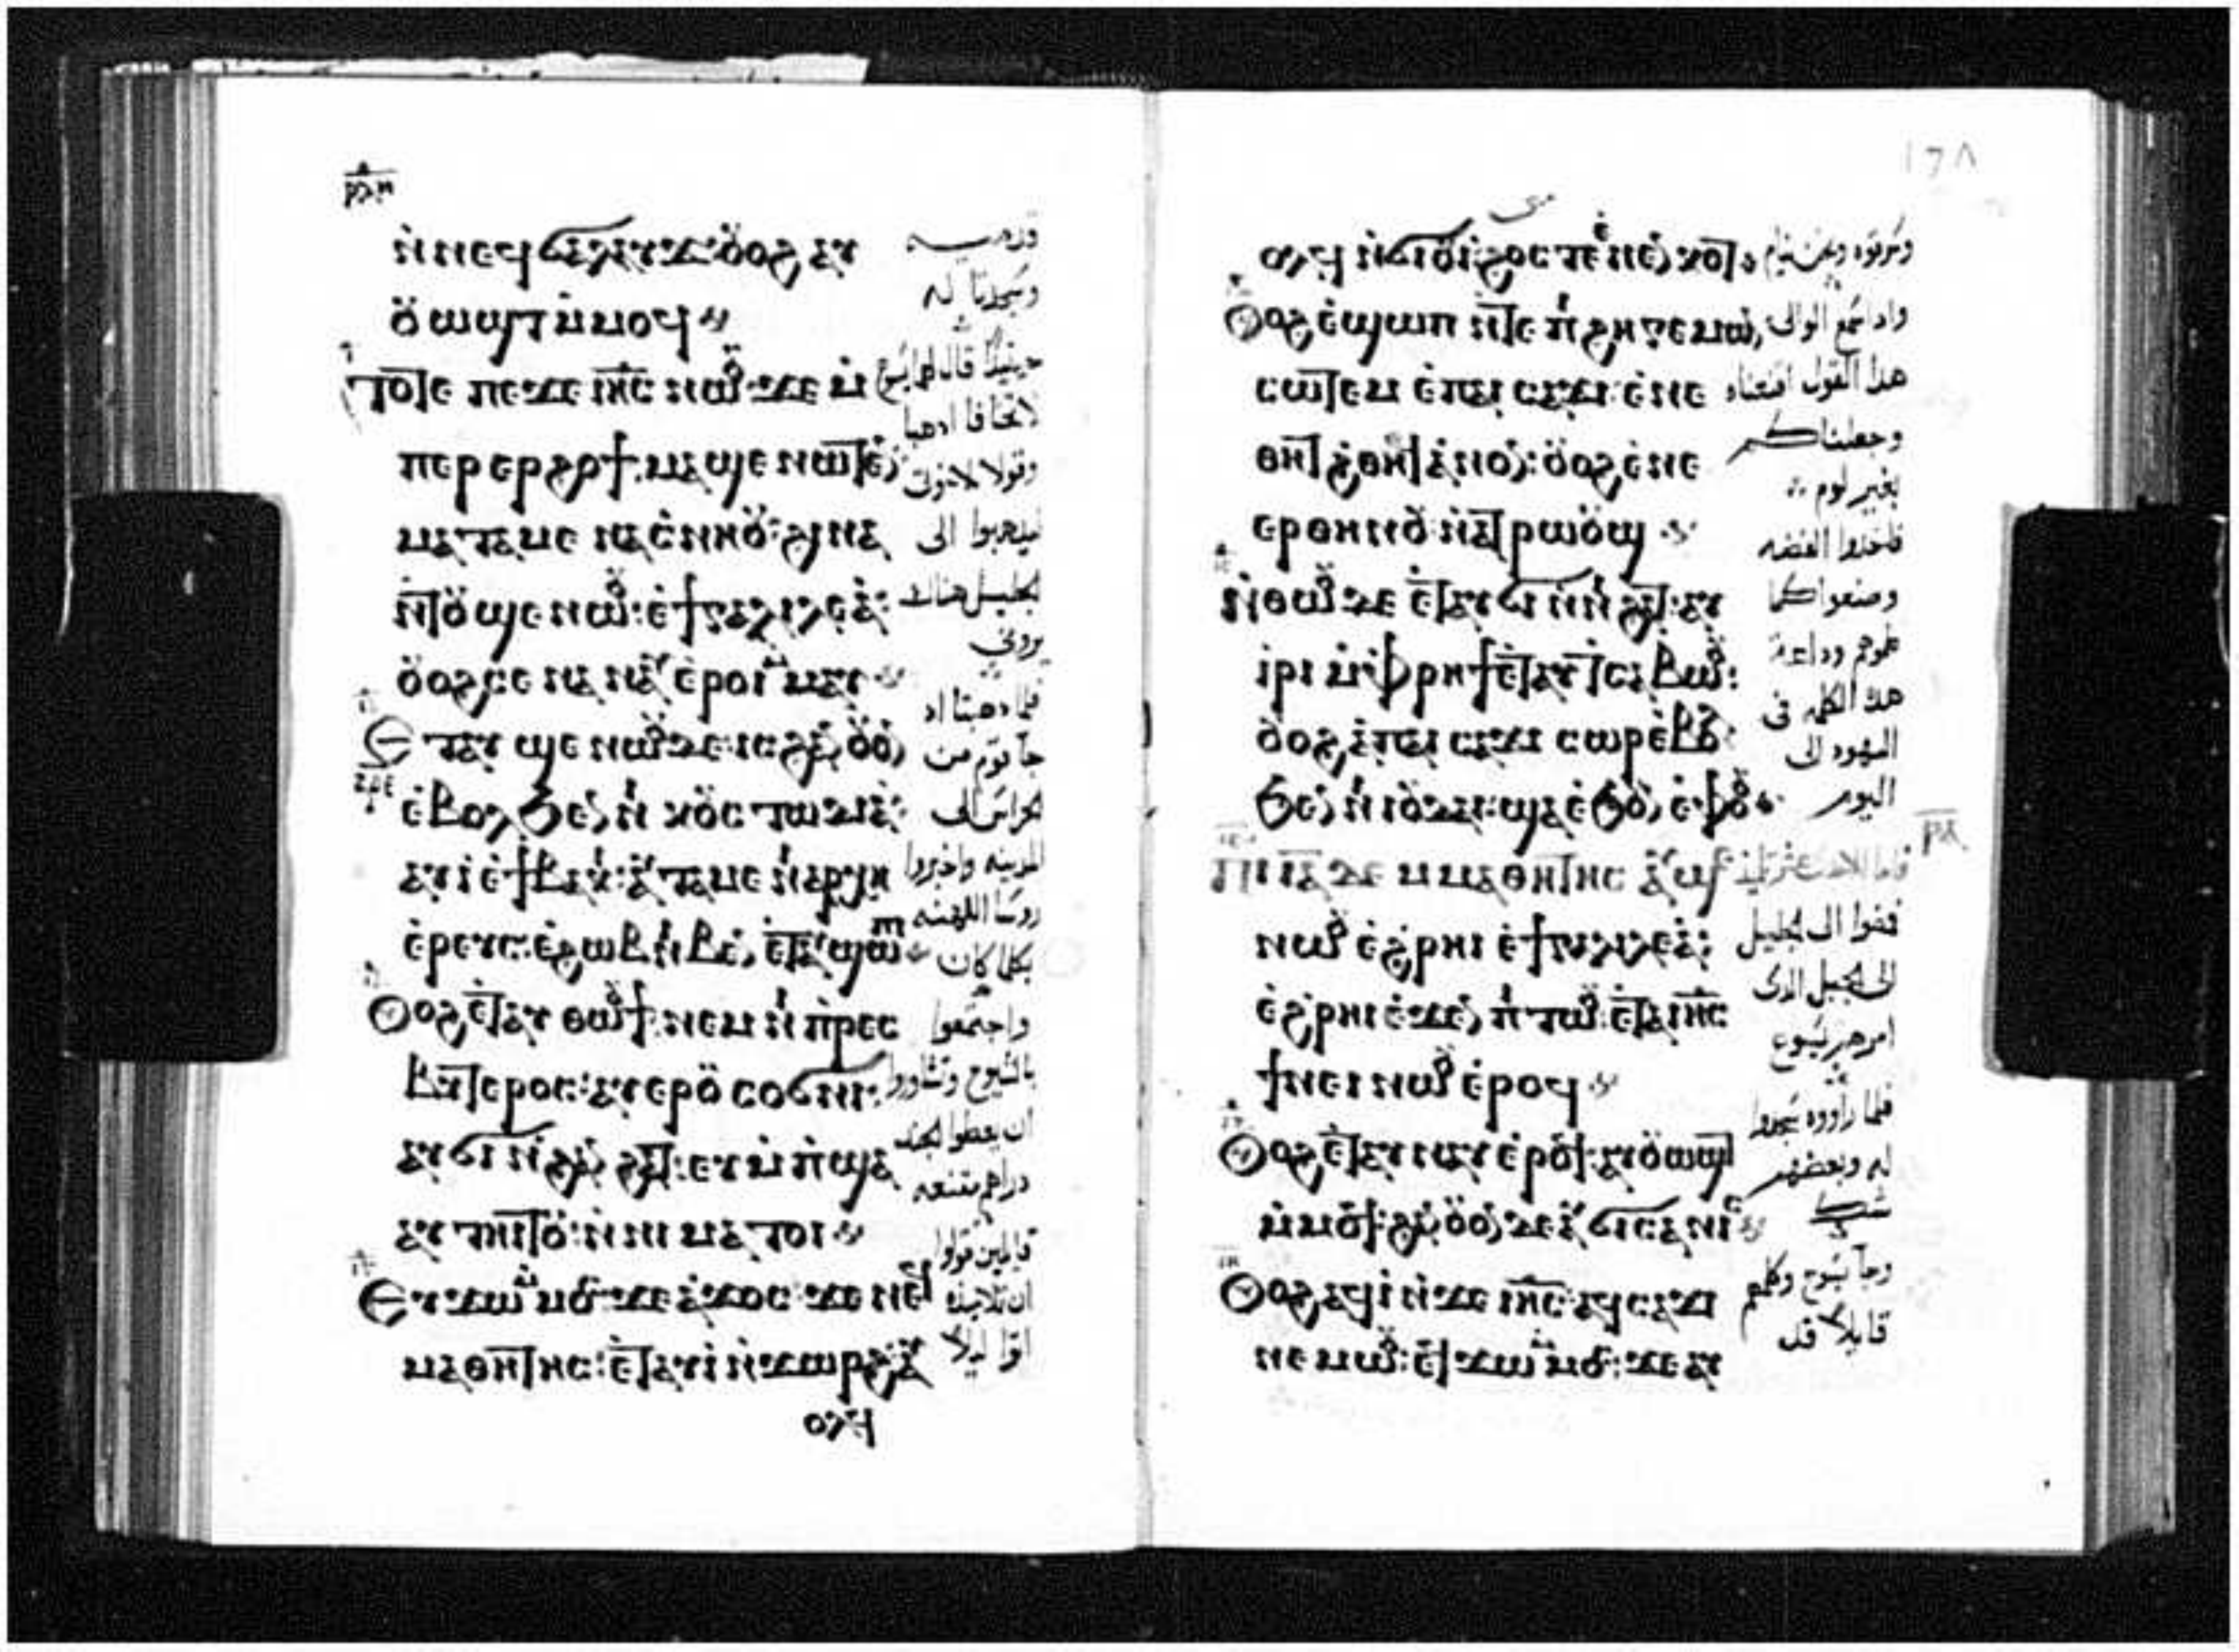 ⲛ̀ⲛⲉϥϭⲁⲗⲁⲩϫ ⲟⲩⲟϩ ⲁⲩ
ⲟⲩⲱϣⲧ ⲙ̀ⲙⲟϥ
ⲧⲟⲧⲉ ⲡⲉϫⲉ ⲓⲏ̅ⲥ̅ ⲛⲱⲟⲩ ϫⲉ ⲙ̀
ⲡⲉⲣⲉⲣϩⲟϯ ⲙⲁϣⲉ ⲛⲱⲧⲉⲛ
ⲙⲁⲧⲁⲙⲉ ⲛⲁⲥⲛⲏⲟⲩ ϩⲓⲛⲁ
ⲛ̀ⲧⲟⲩϣⲉ ⲛⲱⲟⲩ ⲉ̀ϯⲅⲁⲗⲓⲗⲉⲁ̀
ⲟⲩⲟϩ ⲥⲉⲛⲁⲛⲁⲩ ⲉ̀ⲣⲟⲓ ⲙ̀ⲙⲁⲩ
ⲉⲧⲁⲩϣⲉ ⲛⲱⲟⲩ ⲇⲉ ⲓⲥ ϩⲁⲛⲟⲩⲟⲛ
ⲉ̀ⲃⲟⲗ ϧⲉⲛ ⲛⲓⲕⲟⲩⲥⲧⲱⲇⲓⲁ̀
ⲁⲩⲓ̀ ⲉ̀ϯⲃⲁⲕⲓ ⲁⲩⲧⲁⲙⲉ ⲛⲓⲁⲣⲭⲏ
ⲉ̀ⲣⲉⲩⲥ ⲉ̀ϩⲱⲃ ⲛⲓⲃⲉⲛ ⲉ̀ⲧⲁⲩϣⲱⲡⲓ
ⲟⲩⲟϩ ⲉ̀ⲧⲁⲩⲑⲱⲟⲩϯ ⲛⲉⲙ ⲛⲓⲡⲣⲉⲥ
ⲃⲩⲧⲉⲣⲟⲥ ⲁⲩⲉⲣⲟⲩⲥⲟϭⲛⲓ
ⲁⲩϭⲓ ⲛ̀ϩⲁⲛϩⲁⲧ ⲉⲩⲙ̀ⲡϣⲁ
ⲁⲩⲧⲏⲓⲧⲟⲩ ⲛ̀ⲛⲓⲙⲁⲧⲟⲓ
ⲉⲩϫⲱ ⲙ̀ⲙⲟⲥ ϫⲉ ⲁ̀ϫⲟⲥ ϫⲉ ⲛⲉϥ
ⲙⲁⲑⲏⲧⲏⲥ ⲉ̀ⲧⲁⲩⲓ̀ ⲛ̀ϫⲱⲣϩ ⲁⲩ
ⲟⲗϥ
وسجدتا له
حينيذ قال لهما يسوع
لا تخافا اذهبا
وقولا لاخوتى
ليذهبوا الى
الجليل هناك
يرونى
فلما ذهبتا اذ
جا قوم من
الحراس الى
المدينه واخبروا
روسا الكهنه
بكلما كان
واجتمعوا
بالشيوخ وتشاوروا
ان يعطوا الجند
دراهم مقنعه
قايلين قولوا
ان تلاميذه
اتوا ليلا
١٦٨
ⲟⲗϥ ⲛ̀ϭⲓⲟⲩⲓ̀ ϩⲟⲥ ⲧⲉⲛⲉⲛⲕⲟⲧ
ⲟⲩⲟϩ ⲉ̀ϣⲱⲡ ⲛ̀ⲧⲉ ⲡⲓϩⲏⲅⲉⲙⲱⲛ
ⲥⲱⲧⲉⲙ ⲉ̀ⲡⲁⲓⲥⲁϫⲓ ⲉ̀ⲛⲉ
ⲑⲏⲧ ⲛ̀ϩⲏⲧ ⲁ̀ⲛⲟⲛ ⲟⲩⲟϩ ⲉ̀ⲛⲉ
ⲉⲣⲑⲏⲛⲟⲩ ⲛ̀ⲁⲧⲣⲱⲟⲩϣ
ⲛ̀ⲑⲱⲟⲩ ⲇⲉ ⲉ̀ⲧⲁⲩϭⲓ ⲛ̀ⲛⲓϩⲁⲧ ⲁⲩ
ⲓ̀ⲣⲓ ⲙ̀ⲫⲣⲏϯ ⲉ̀ⲧⲁⲩⲧⲥⲁⲃⲱⲟⲩ
ⲟⲩⲟϩ ⲁ̀ ⲡⲁⲓⲥⲁϫⲓ ⲥⲱⲣ ⲉ̀ⲃⲟⲗ
ϧⲉⲛ ⲛⲓⲓⲟⲩⲇⲁⲓ ϣⲁ ⲉ̀ϧⲟⲩⲛ ⲉ̀ⲫⲟⲟⲩ
ⲡⲓⲓ̅ⲁ̅ ⲇⲉ ⲙ̀ⲙⲁⲑⲏⲧⲏⲥ ⲁⲩϣⲉ
ⲛⲱⲟⲩ ⲉ̀ϩⲣⲏⲓ ⲉ̀ϯⲅⲁⲗⲓⲗⲉⲁ̀
ⲉ̀ϩⲣⲏⲓ ⲉ̀ϫⲉⲛ ⲡⲓⲧⲱⲟⲩ ⲉ̀ⲧⲁ ⲓⲏ̅ⲥ̅
ϯⲙⲉⲓ ⲛⲱⲟⲩ ⲉ̀ⲣⲟϥ
ⲟⲩⲟϩ ⲉ̀ⲧⲁⲩⲛⲁⲩ ⲉ̀ⲣⲟϥ ⲁⲩⲟⲩⲱϣⲧ
ⲙ̀ⲙⲟϥ ϩⲁⲛⲟⲩⲟⲛ ⲇⲉ ⲁⲩϭⲓⲥⲁⲛⲓⲥ
ⲟⲩⲟϩ ⲁϥⲓ̀ ⲛ̀ϫⲉ ⲓⲏ̅ⲥ̅ ⲁϥⲥⲁϫⲓ
ⲛⲉⲙⲱⲟⲩ ⲉϥϫⲱ ⲙ̀ⲙⲟⲥ ϫⲉ ⲁⲩ
وسرقوه ونحن نيام
واذا سمع الوالى
هذا القول اقنعناه
وجعلناكم
بغير لوم
فاخذوا الفضه
وصنعوا كما
علموهم وذاعت
هذه الكلمه فى
اليهود الى
اليوم
فاما الاحد عشر تلميذ
فمضوا الى الجليل
الى الجبل الذى
امرهم يسوع
فلما راووه سجدوا
له وبعضهم
شك
وجا يسوع وكلمهم
قايلا قد